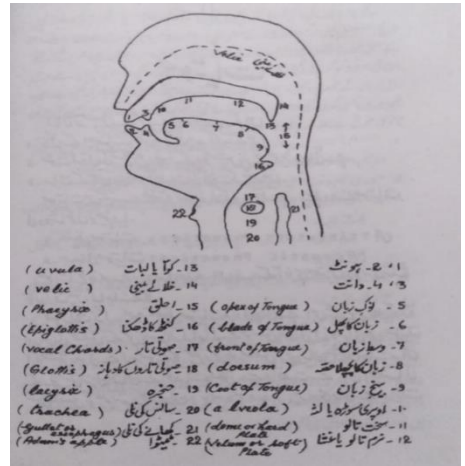 خلائے بینی
3 10 11 12 14
1 2 4 5 6 7 8 13
15
9
16
17
22 18 21
19
20
1، 2۔ ہونٹ
3، 4۔ دانت
5۔ نوک زبان (apex of Tongue)
6۔ زبان کا پھل (blade of Tongue)
7۔ وسط زبان (front of Tongue)
8۔ زبان کا پچھلا حصہ (dorsum)
9۔ بیخ زبان (Coot of Tongue)
10۔ اوپری مسوڑہ یا لثہ (alveola)
11۔ سخت تالو (dome or Hard Plate
12۔ نرم تالو یا غشا (Velum or soft Plate
13۔ کوّا یا لہات (uvula)
14۔ خلائے بینی (velic)
15۔ حلق (Pharynix)
16۔ کنٹھ کا ڈھکنا (Epiglottis)
17۔ صوتی تار (vocal Chords)
18۔ صوتی تاروں کا دہانہ (Glottis)
19۔ حنجرہ (larynix)
20۔ سانس کی نلی (trachea)
21۔ کھانے کی نلی (gullet or esophagus)
22۔ ٹینٹوا (Adam's apple)